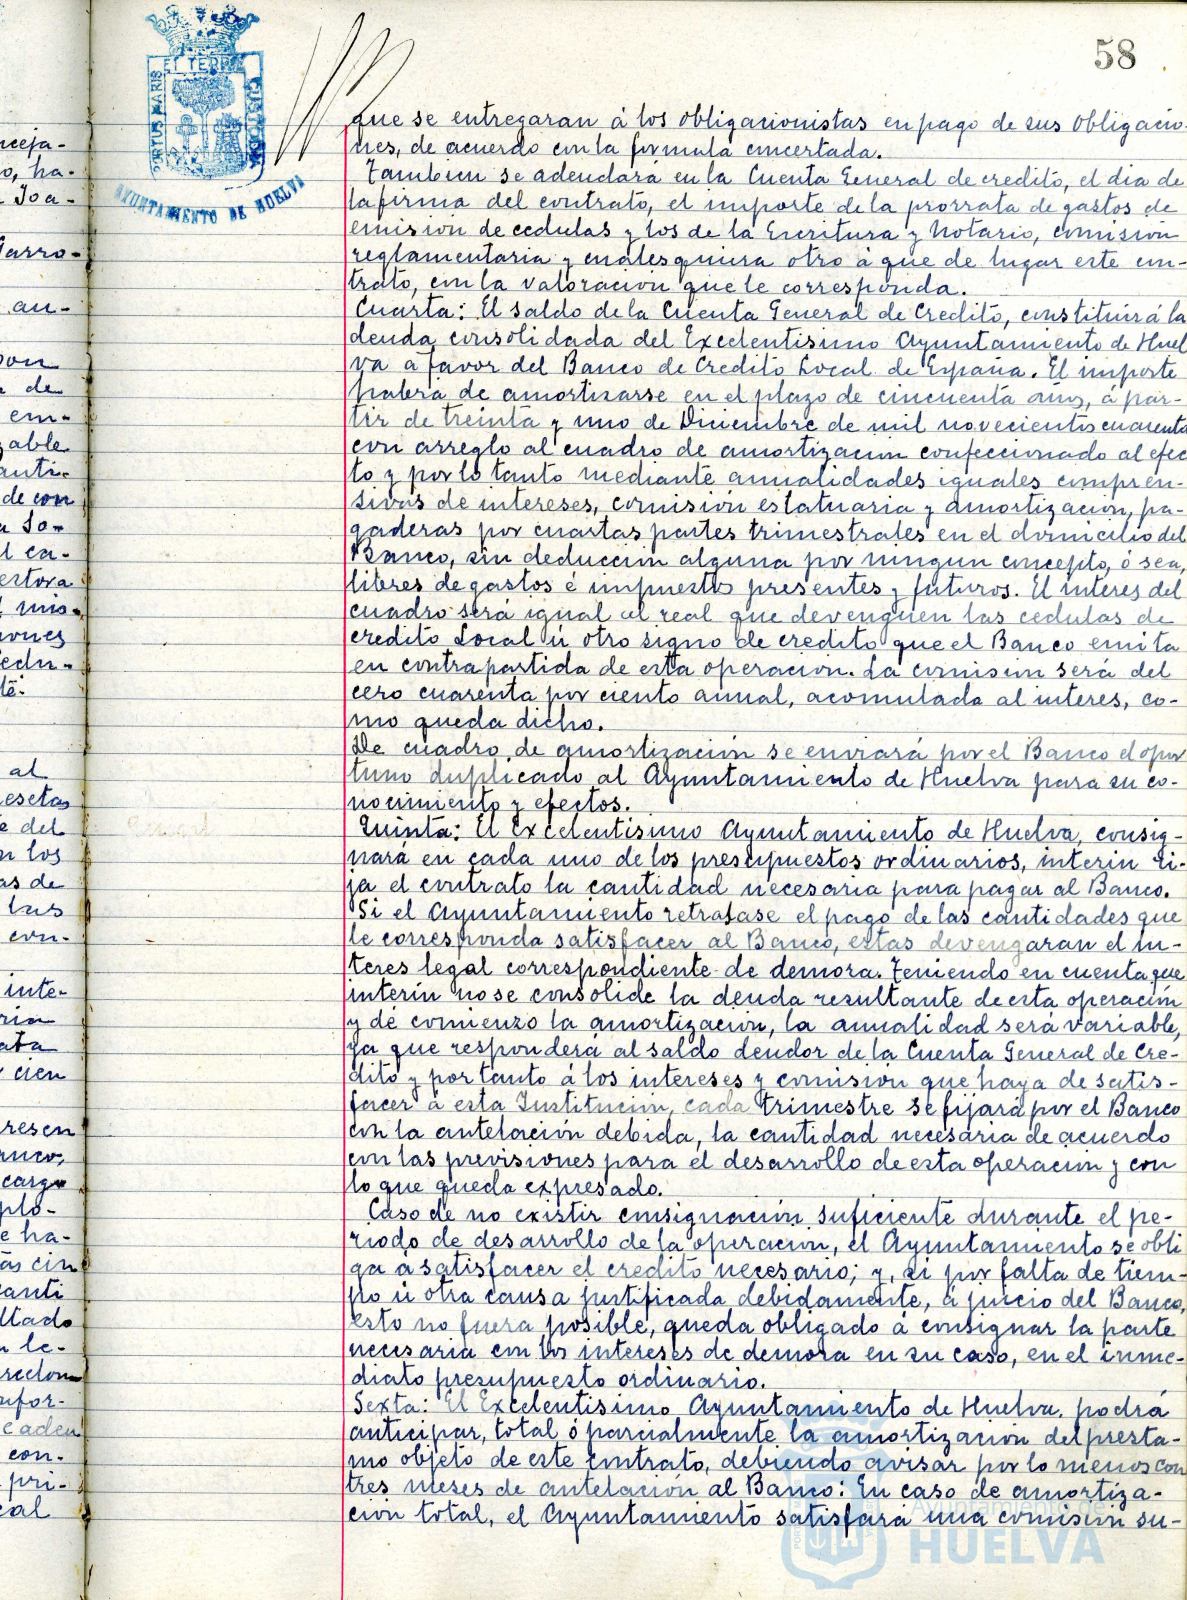 58
PORTUS MARIS
ET TERRE
CUSTODIA
AYUNTAMIENTO DE HUELVA
que se entregaran á los obligacionistas en pago de sus obligacio-
nes, de acuerdo con la formula concertada.
Tambien se adeudará en la Cuenta General de credito, el dia de
la firma del contrato, el importe de la prorrata de gastos de
emision de cedulas y los de la Escritura y Notario, comisión
reglamentaria y cualesquiera otro á que de lugar este con-
trato, con la valoración que le corresponda.
Cuarta: El saldo de la Cuenta General de Credito, constituirá la
deuda consolidada del Excelentisimo Ayuntamiento de Huel
va a favor del Banco de Credito Local de España. El importe
habrá de amortizarse en el plazo de cincuenta años, á par-
tir de treinta y uno de Diciembre de mil novecientos cuarenta
con arreglo al cuadro de amortización confeccionado al efec
to y por lo tanto mediante anualidades iguales compren-
sivas de intereses, comisión estatuaria y amortización, pa-
gaderas por cuartas partes trimestrales en el domicilio del
Banco, sin deducción alguna por ningun concepto, ó sea,
libres de gastos é impuestos presentes y futuros. El interes del
cuadro será igual al real que devenguen las cedulas de
credito Local ú otro signo de credito que el Banco emita
en contrapartida de esta operación. La comisión será del
cero cuarenta por ciento anual, acomulada al interes, co-
mo queda dicho.
De cuadro de amortización se enviará por el Banco el opor
tuno duplicado al Ayuntamiento de Huelva para su co-
nocimiento y efectos.
Quinta: El Excelentisimo Ayuntamiento de Huelva, consig-
nará en cada uno de los presupuestos ordinarios, interin ri-
ja el contrato la cantidad necesaria para pagar al Banco.
Si el Ayuntamiento retrasase el pago de las cantidades que
le corresponda satisfacer al Banco, estas devengaran el in-
teres legal correspondiente de demora. Teniendo en cuenta que
interin no se consolide la deuda resultante de esta operación
y dé comienzo la amortización, la anualidad será variable,
ya que responderá al saldo deudor de la Cuenta General de Cre-
dito y por tanto á los intereses y comisión que haya de satis-
facer á esta Institución, cada trimestre se fijará por el Banco
con la antelación debida, la cantidad necesaria de acuerdo
con las previsiones para el desarrollo de esta operación y con
lo que queda expresado.
Caso de no existir consignación suficiente durante el pe-
riodo de desarrollo de la operación, el Ayuntamiento se obli
ga á satisfacer el credito necesario; y, si por falta de tiem-
po ú otra causa justificada debidamente, á juicio del Banco,
esto no fuera posible, queda obligado á consignar la parte
necesaria con los intereses de demora en su caso, en el inme-
diato presupuesto ordinario.
Sexta: El Excelentisimo Ayuntamiento de Huelva, podrá
anticipar, total ó parcialmente la amortización del presta-
mo objeto de este contrato, debiendo avisar por lo menos con
tres meses de antelación al Banco: En caso de amortiza-
ción total, el Ayuntamiento satisfará una comisión su-
Ayuntamiento de
HUELVA